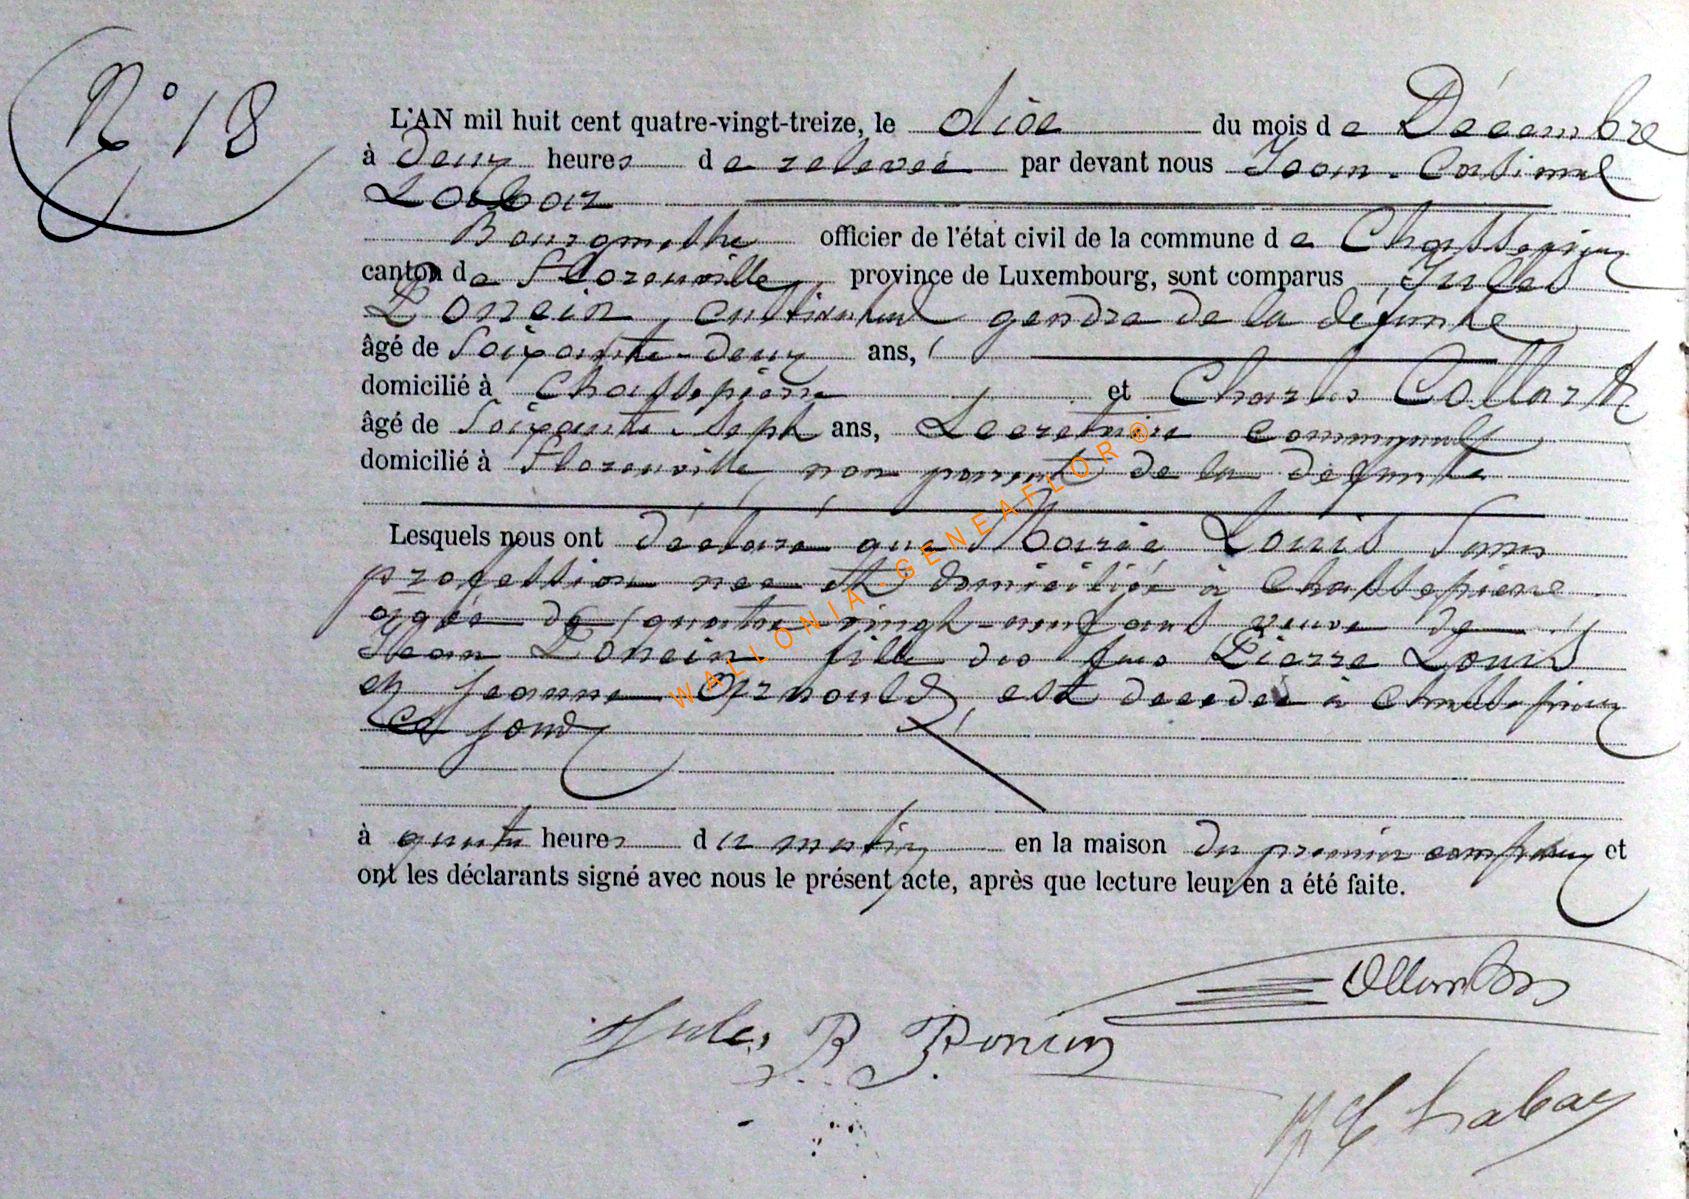 N° 18
L'AN mil huit cent quatre-vingt-treize, le dix du mois de Décembre
à deux heures de relevée par devant nous Jean-Casimir
Labbaiz
Bourgmestre officier de l'état civil de la commune de Chassepierre
canton de Florenville province de Luxembourg, sont comparus Jules
Poncin, cultivateur gendre de la défunte
âgé de Soixante-deux ans,
domicilié à Chassepierre et Charles Collard
âgé de Soixante-sept ans, Secrétaire communal
domicilié à Florenville, non parent de la défunte
Lesquels nous ont déclaré que Marie Louis sans
profession née et domiciliée à Chassepierre
agée de quatre vingt-neuf ans veuve de
Jean Poncin fille des feus Pierre Louis
et Jeanne Arnould, est décédée à Chassepierre
ce jourd
à quatre heures du matin en la maison du premier comparant et
ont les déclarants signé avec nous le présent acte, après que lecture leur en a été faite.
Jules Poncin
WALLONIA-GENEAFLOR ®